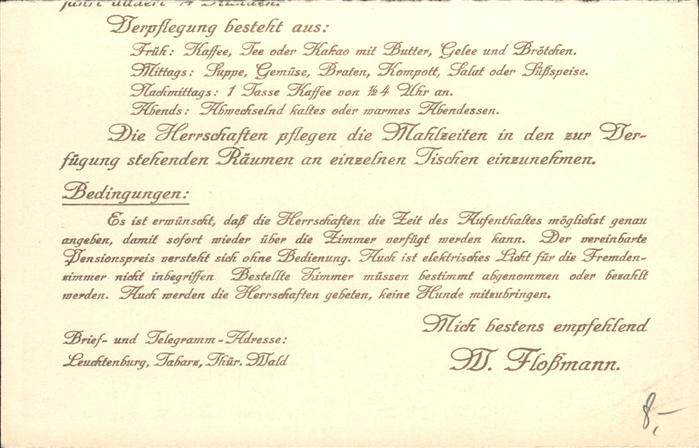 Verpflegung besteht aus:
Früh: Kaffee, Tee oder Kakao mit Butter, Gelee und Brötchen.
Mittags: Suppe, Gemüse, Braten, Kompott, Salat oder Süßspeise.
Nachmittags: 1 Tasse Kaffee von ½4 Uhr an.
Abends: Abwechselnd kaltes oder warmes Abendessen.
Die Herrschaften pflegen die Mahlzeiten in den zur Ver-
fügung stehenden Räumen an einzelnen Tischen einzunehmen.
Bedingungen:
Es ist erwünscht, daß die Herrschaften die Zeit des Aufenthaltes möglichst genau
angeben, damit sofort wieder über die Zimmer verfügt werden kann. Der vereinbarte
Pensionspreis versteht sich ohne Bedienung. Auch ist elektrisches Licht für die Fremden-
zimmer nicht inbegriffen Bestellte Zimmer müssen bestimmt abgenommen oder bezahlt
werden. Auch werden die Herrschaften gebeten, keine Hunde mitzubringen.
Mich bestens empfehlend
W. Floßmann.
Brief- und Telegramm-Adresse:
Leuchtenburg, Tabarz, Thür. Wald
8,-